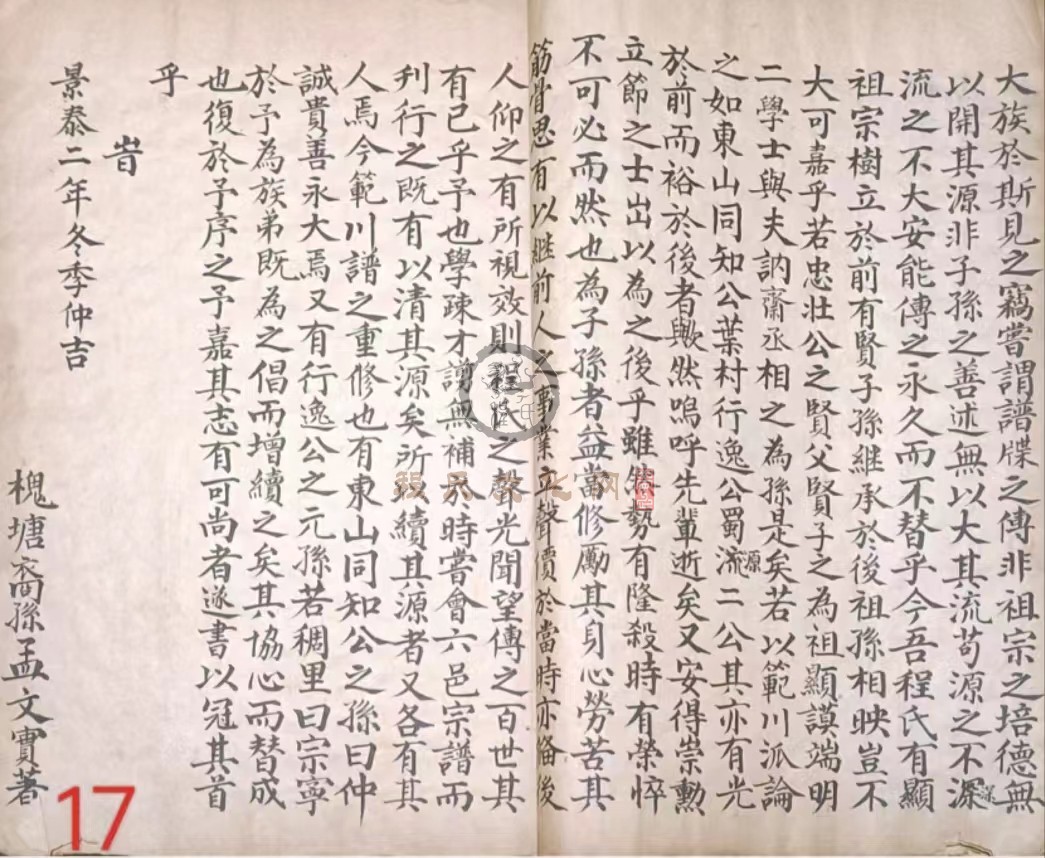 大族於斯見之竊嘗謂譜牒之傳非祖宗之培德無
以開其源非子孫之善述無以大其流苟源之不深
流之不大安能傳之永久而不替乎今吾程氏有顯
祖宗樹立於前有賢子孫継承於後祖孫相映豈不
大可嘉乎若忠壯公之賢父賢子之為祖顯謨端明
二學士與夫訥齋丞相之為孫是矣若以範川派論
之如東山同知公葉村行逸公蜀源流二公其亦有光
於前而裕於後者歟然嗚呼先輩逝矣又安得崇勲
立節之士出以為之後乎雖伹勢有隆殺時有榮悴
不可必而然也為子孫者益當修勵其身心勞苦其
筋骨思有以継前人之事業立聲價於當時亦俻後
人仰之有所視效則程氏之聲光聞望傳之百世其
有已乎予也學疎才謭無補今時嘗會六邑宗譜而
刋行之既有以清其源矣所續其源者又各有其
人焉今範川譜之重修也有東山同知公之孫曰仲
誠貴善永大焉又有行逸公之元孫若稠里曰宗寧
於予為族弟既為之倡而增續之矣其協心而替成
也復於予序之予嘉其志有可尚者遂書以冠其首
乎
旹
景泰二年冬季仲吉
槐塘裔孫孟文實著
17